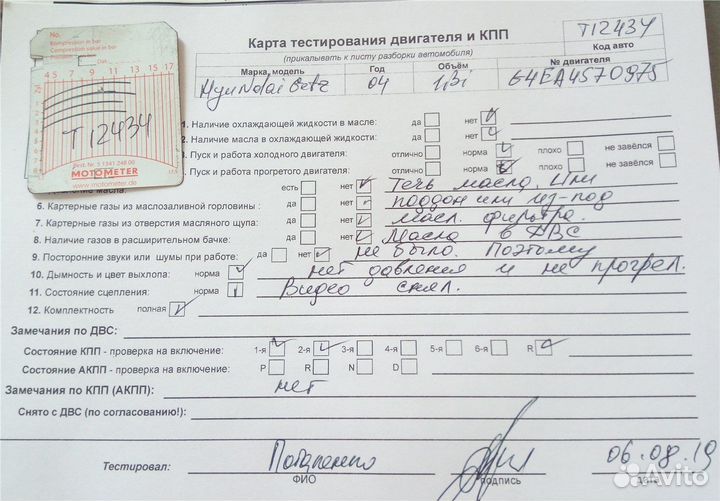 Карта тестирования двигателя и КПП
(прикалывать к листу разборки автомобиля)
T12434
Код авто
Марка, модель Год Объём № двигателя
Hyundai Getz 04 1,3i G4EA4570975
No.
Kompression in bar
Compression value in bar
4 5 7 9 11 13 15 17
T12434
Best. Nr. 5 1341 248 00
MOTOMETER
www.motometer.de
1. Наличие охлаждающей жидкости в масле: да нет
2. Наличие масла в охлаждающей жидкости: да нет
3. Пуск и работа холодного двигателя: отлично норма плохо не завёлся
4. Пуск и работа прогретого двигателя: отлично норма плохо не завёлся
масла: есть нет Течь масла. Или
6. Картерные газы из маслозаливной горловины : да нет поддон или из-под
7. Картерные газы из отверстия масляного щупа: да нет масл. фильтра.
8. Наличие газов в расширительном бачке: да нет Масла в ДВС
9. Посторонние звуки или шумы при работе: да нет не было. Поэтому
10. Дымность и цвет выхлопа: норма нет давления и не прогрел.
11. Состояние сцепления: норма Видео снял.
12. Комплектность полная
Замечания по ДВС:
Состояние КПП - проверка на включение: 1-я 2-я 3-я 4-я 5-я 6-я R
Состояние АКПП - проверка на включение: P R N D
Замечания по КПП (АКПП): нет
Снято с ДВС (по согласованию!):
Тестировал: Потапенко 06.08.19
ФИО подпись дата
Avito